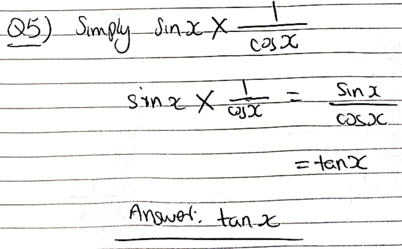 Q5) Simply sinx × 1/cosx
sinx × 1/cosx = sinx/cosx
= tanx
Answer: tanx